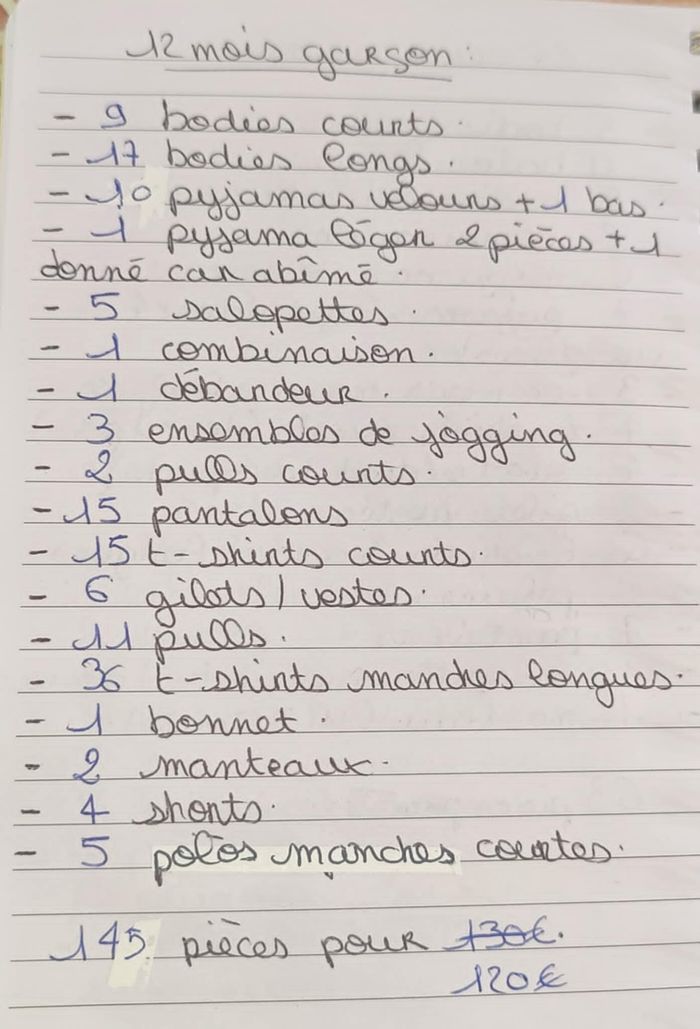 12 mois garçon :
- 9 bodies courts.
- 17 bodies longs.
- 10 pyjamas velours + 1 bas.
- 1 pyjama léger 2 pièces + 1
donné car abîmé.
- 5 salopettes.
- 1 combinaison.
- 1 débardeur.
- 3 ensembles de jogging.
- 2 pulls courts.
- 15 pantalons
- 15 t-shirts courts.
- 6 gilets / vestes.
- 11 pulls.
- 36 t-shirts manches longues.
- 1 bonnet.
- 2 manteaux.
- 4 shorts.
- 5 polos manches courtes.
145 pièces pour 130€.
120€